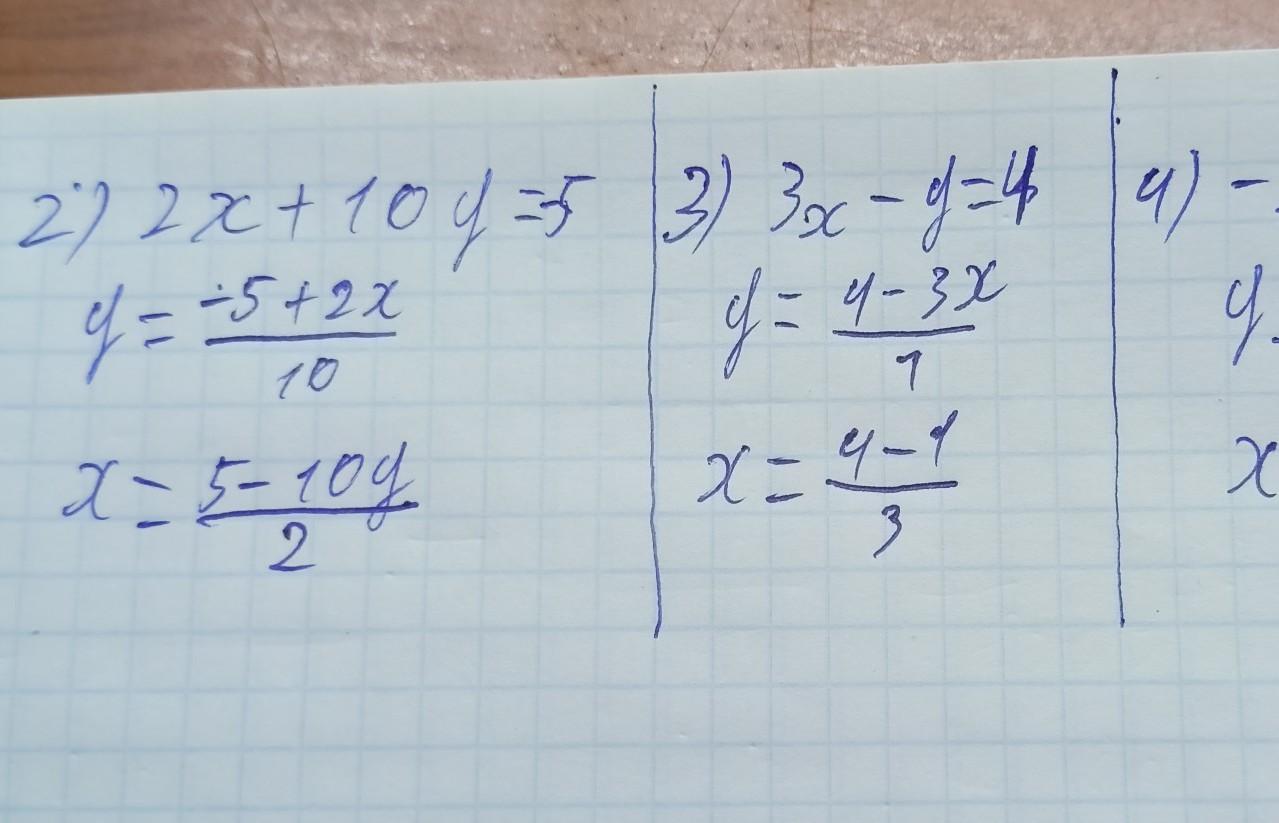 2) 2x + 10y = 5
y = -5 + 2x / 10
x = 5 - 10y / 2
3) 3x - y = 4
y = 4 - 3x / 1
x = 4 - 1 / 3
4) -
y
x